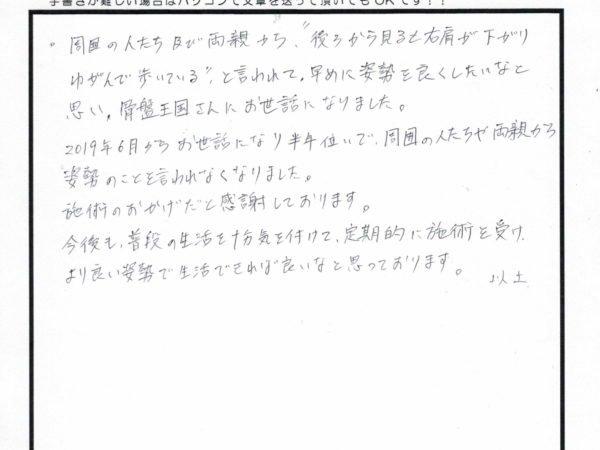 手書きが難しい場合はパソコンで文章を送って頂いてもOKです！！
・周囲の人たち及び両親から、"後ろから見ると右肩が下がり
ゆがんで歩いている"、と言われて、早めに姿勢を良くしたいなと
思い、骨盤王国さんにお世話になりました。
2019年6月からお世話になり半年位いで、周囲の人たちや両親から
姿勢のことを言われなくなりました。
施術のおかげだと感謝しております。
今後も、普段の生活を十分気を付けて、定期的に施術を受け、
より良い姿勢で生活できれば良いなと思っております。
以上